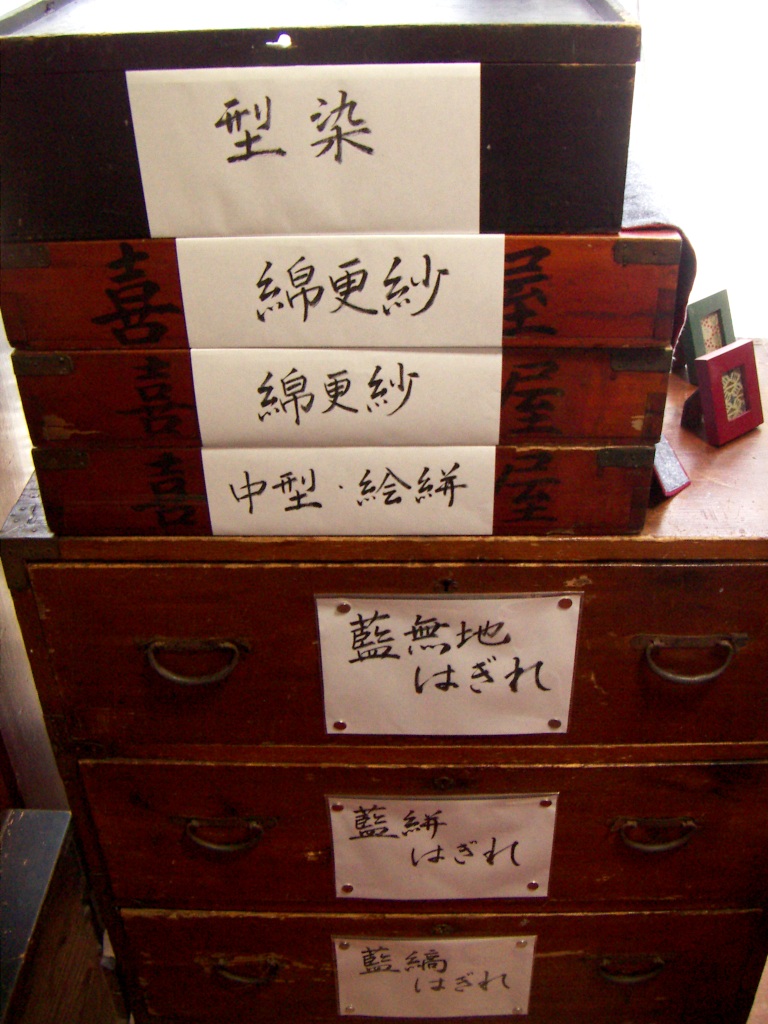 型染
喜 綿更紗 屋
喜 綿更紗 屋
喜 中型・絵絣 屋
藍無地
はぎれ
藍絣
はぎれ
藍縞
はぎれ